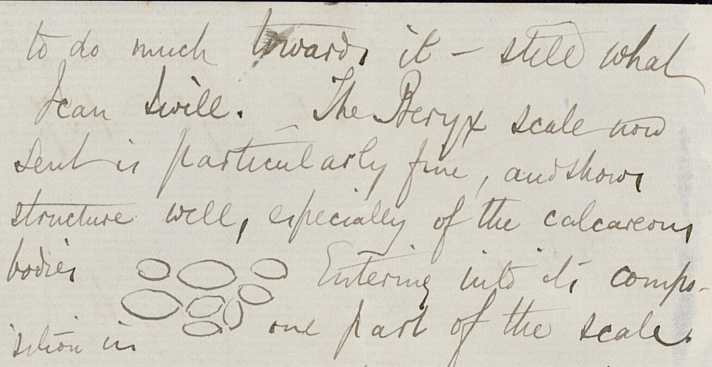 to do much towards it – still what
I can I will. – The Beryx scale now
sent is particularly fine, and shows
structure well, especially of the calcareous
bodies Entering into its compo-
sition in one part of the scale.